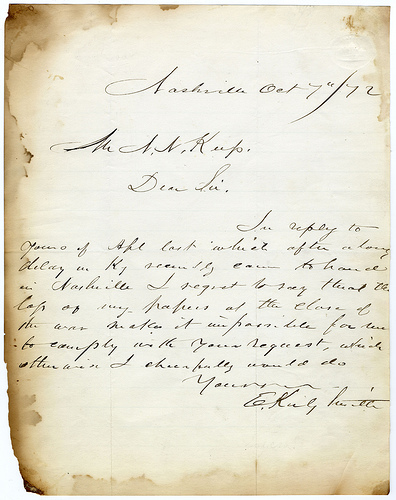 Nashville Oct 7th/72
Mr N. N. Kemp.
Dear Sir.
In reply to
yours of Apl last which after a long
delay in Ky recently came to hand
in Nashville I regret to say that the
loss of my papers at the close of
the war makes it impossible for me
to comply with your request, which
otherwise I cheerfully would do
Yours
E. Kirby Smith